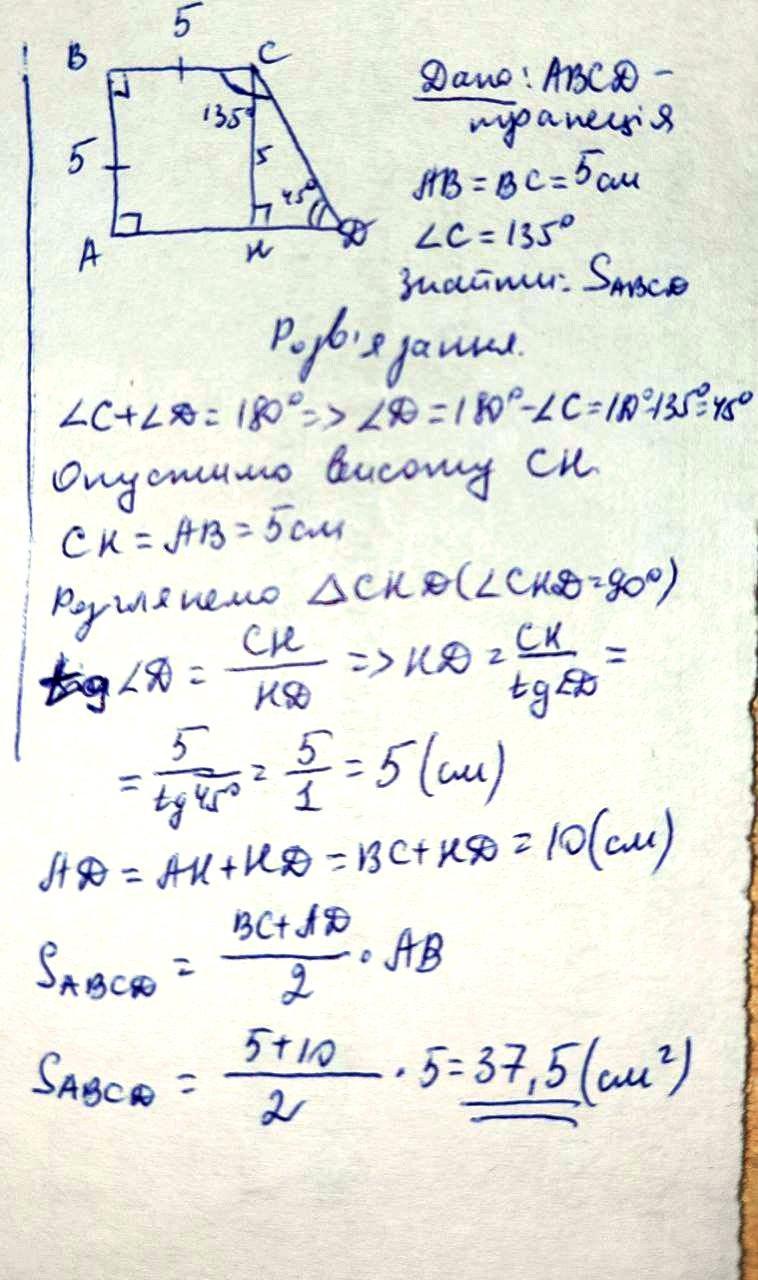 5
B
C
135°
5
5
45°
A
H
D
Дано: ABCD –
трапеція
AB = BC = 5 см
∠C = 135°
Знайти: S_ABCD
Розв'язання.
∠C + ∠D = 180° => ∠D = 180° - ∠C = 180° - 135° = 45°
Опустимо висоту CH.
CH = AB = 5 см
Розглянемо △CHD (∠CHD = 90°)
tg ∠D = CH/HD => HD = CH/tg∠D =
= 5/tg 45° = 5/1 = 5 (см)
AD = AH + HD = BC + HD = 10 (см)
S_ABCD = (BC + AD)/2 · AB
S_ABCD = (5 + 10)/2 · 5 = 37,5 (см²)